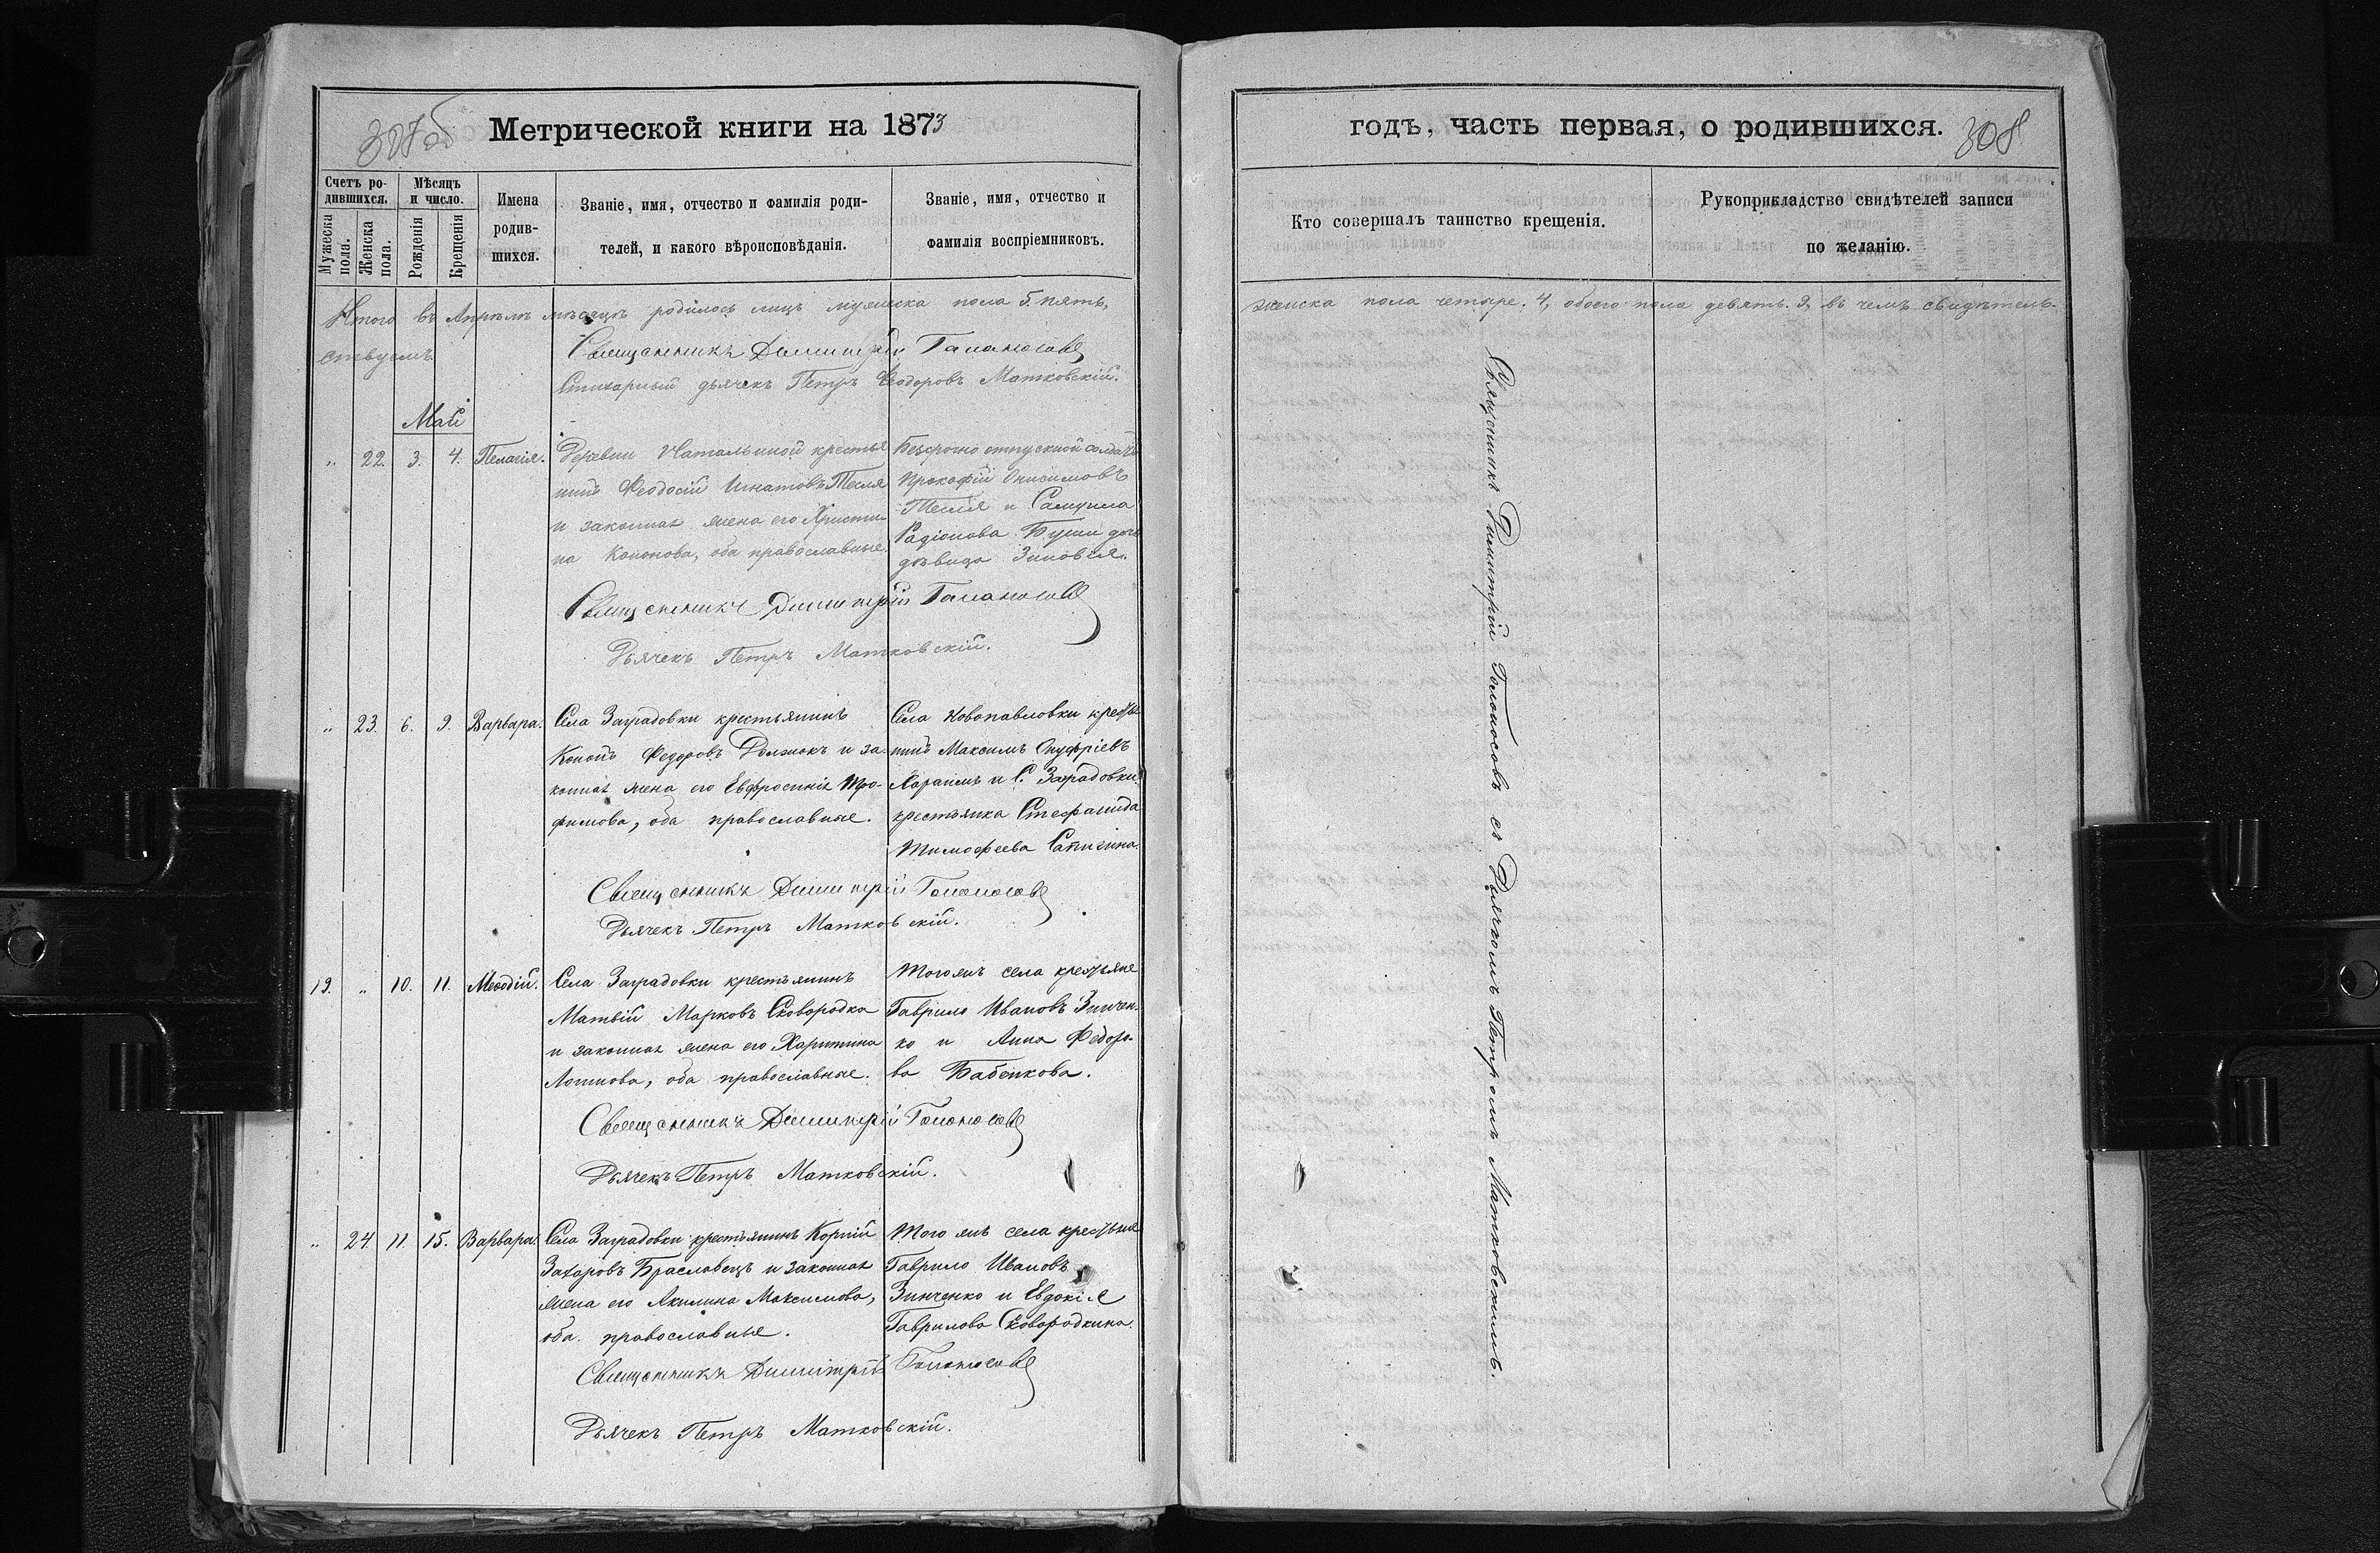 307об
Метрической книги на 1873
Счетъ ро-
дившихся.
Мужеска
пола.
Женска
пола.
Мѣсяцъ
и число.
Рожденія
Крещенія
Имена
родив-
шихся.
Званіе, имя, отчество и фамилія роди-
телей, и какого вѣроисповѣданія.
Званіе, имя, отчество и
фамилія воспріемниковъ.
Итого въ Апрѣлѣ мѣсяцѣ родилось лицъ мужеска пола 5. пять,
ствуемъ.
Священникъ Димитрій Голоносовъ
Стихарный дьячекъ Петръ Ѳеодоровъ Матковскій.
Май
„ 22. 3. 4. Пелагія.
Деревни Натальиной крестья
нинъ Ѳеодосій Игнатовъ Тесля
и законная жена его Христи-
на Кононова, оба православные.
Безсрочно отпускной солдатъ
Прокофій Онисимовъ
Тесля и Самуила
Радіонова Буши дочь
дѣвица Зиновія.
Священникъ Димитрій Голоносовъ
Дьячекъ Петръ Матковскій.
„ 23. 6. 9. Варвара.
Села Заградовки крестьянинъ
Кононъ Федоровъ Должокъ и за-
конная жена его Евфросинія Тро-
фимова, оба православные.
Села Новопавловки крестья
нинъ Максимъ Онуфріевъ
Харапимъ и С. Заградовки
крестьянка Стефанида
Тимофеева Сапигина.
Священникъ Димитрій Голоносовъ
Дьячекъ Петръ Матковскій.
19. „ 10. 11. Меѳодій.
Села Заградовки крестьянинъ
Матвій Марковъ Сковородка
и законная жена его Харитина
Логинова, оба православные.
Того жъ села крестьяне
Гаврило Ивановъ Зинчен-
ко и Анна Федоро-
ва Бабенкова.
Священникъ Димитрій Голоносовъ
Дьячекъ Петръ Матковскій.
„ 24 11. 15. Варвара.
Села Заградовки крестьянинъ Корній
Захаровъ Браславецъ и законная
жена его Акилина Максимова,
оба православные.
Того жъ села крестьяне
Гаврило Ивановъ
Зинченко и Евдокія
Гаврилова Сковородкина.
Священникъ Димитрій Голоносовъ
Дьячекъ Петръ Матковскій.
годъ, часть первая, о родившихся.
308
Кто совершалъ таинство крещенія.
Рукоприкладство свидѣтелей записи
по желанію.
женска пола четыре. 4, обоего пола девять. 9, въ чемъ свидѣтель-
Священникъ Димитрій Голоносовъ съ Дьячкомъ Петромъ Матковскимъ.